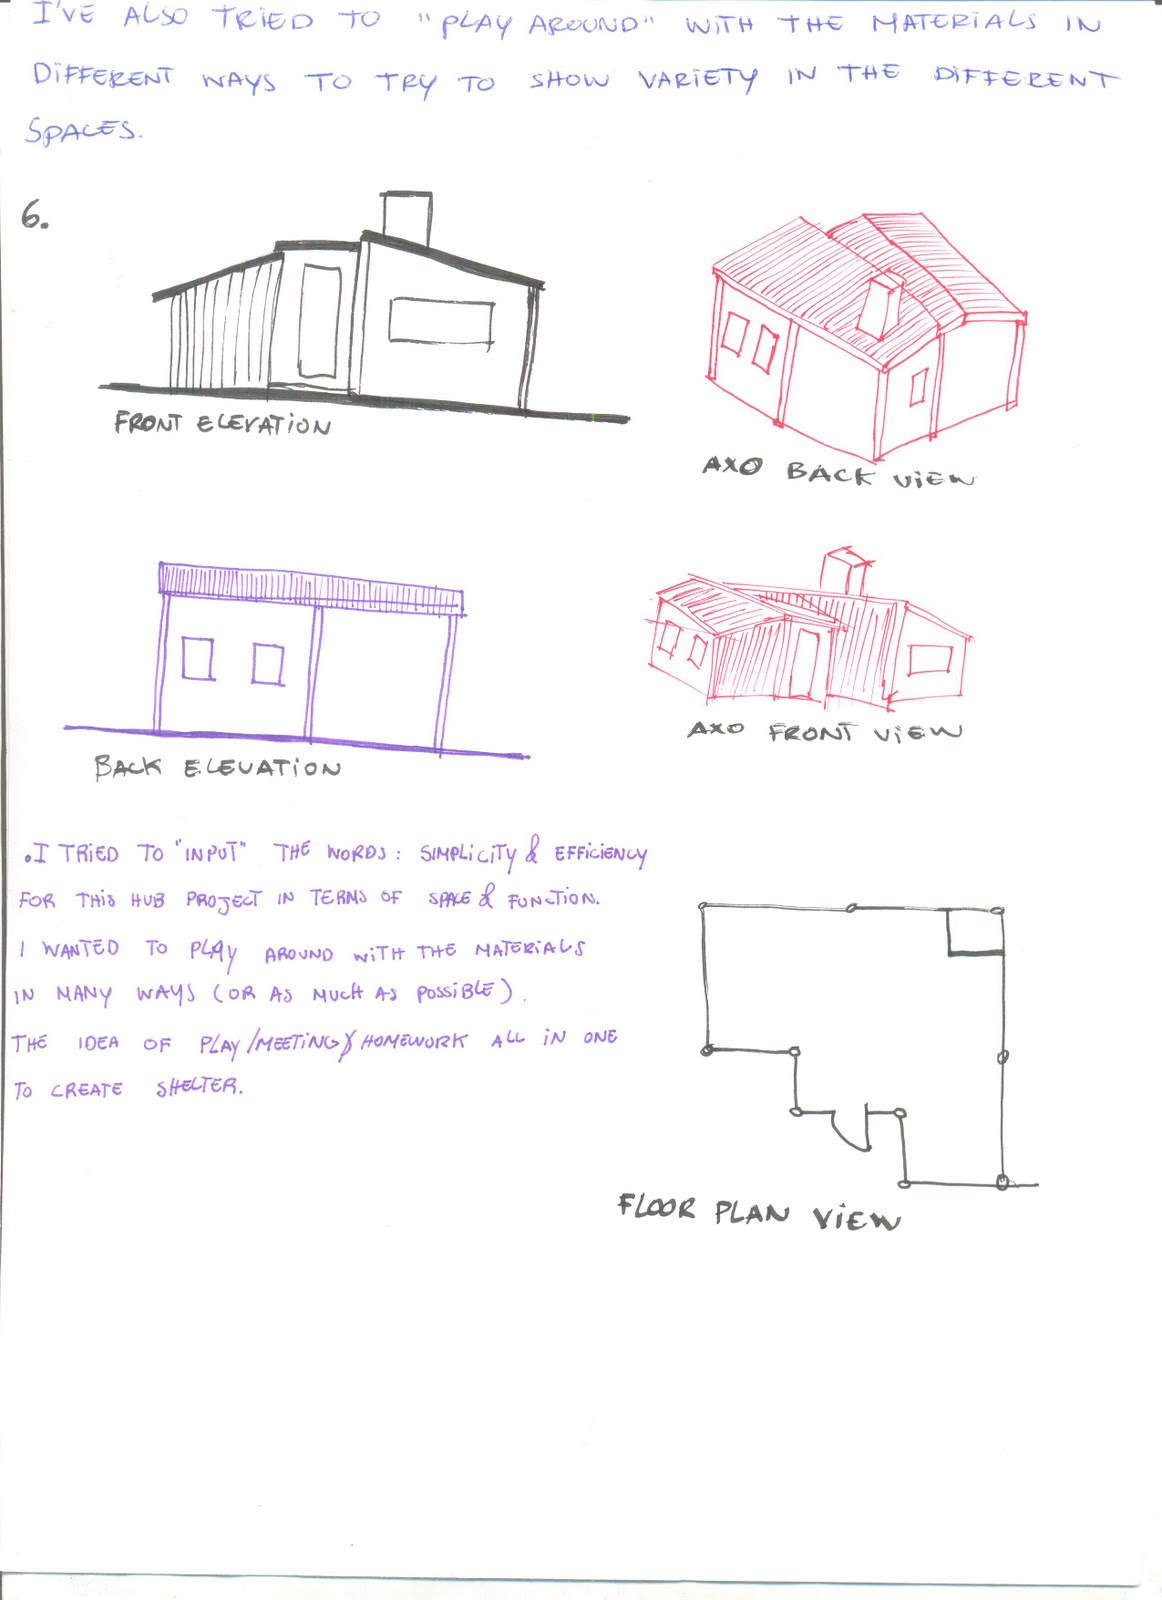 I'VE ALSO TRIED TO "PLAY AROUND" WITH THE MATERIALS IN
DIFFERENT WAYS TO TRY TO SHOW VARIETY IN THE DIFFERENT
SPACES.
6.
FRONT ELEVATION
AXO BACK VIEW
BACK ELEVATION
AXO FRONT VIEW
.I TRIED TO "INPUT" THE WORDS: SIMPLICITY & EFFICIENCY
FOR THIS HUB PROJECT IN TERMS OF SPACE & FUNCTION.
I WANTED TO PLAY AROUND WITH THE MATERIALS
IN MANY WAYS (OR AS MUCH AS POSSIBLE).
THE IDEA OF PLAY/MEETING & HOMEWORK ALL IN ONE
TO CREATE SHELTER.
FLOOR PLAN VIEW